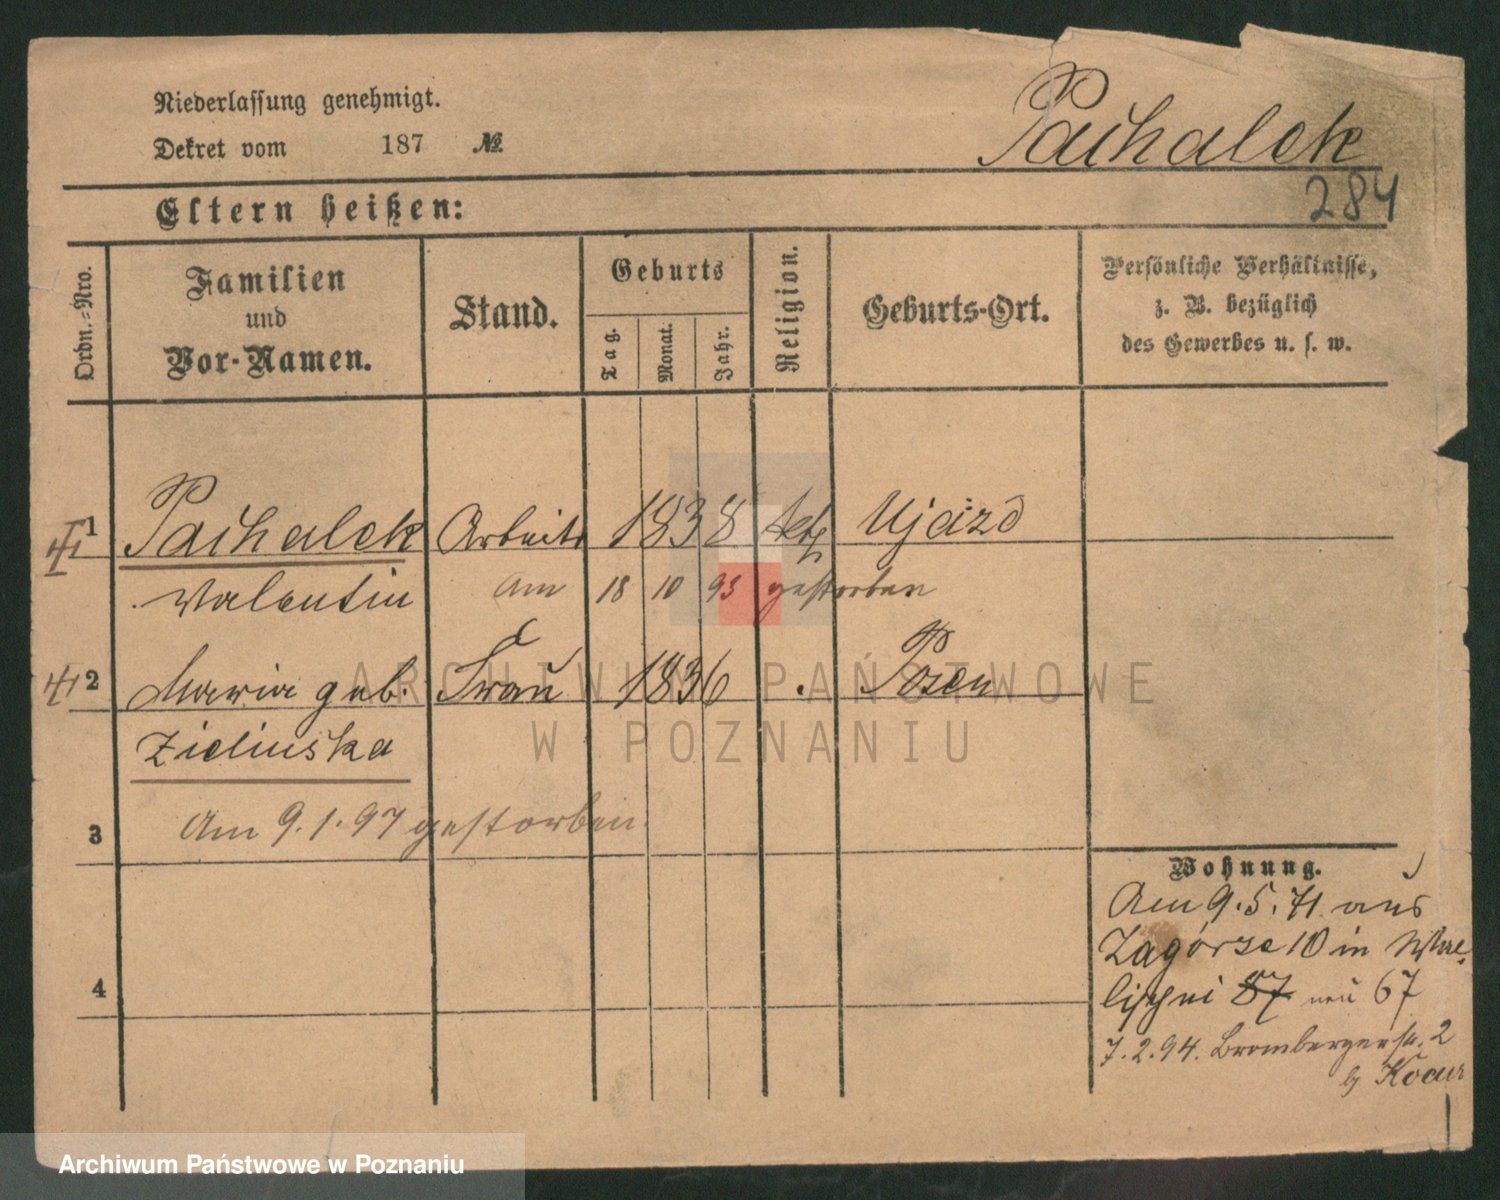 Niederlassung genehmigt.
Dekret vom 187 №
Pachalek
284
Eltern heißen:
Ordn.=Nro.
Familien
und
Vor-Namen.
Stand.
Geburts
Tag.
Monat.
Jahr.
Religion.
Geburts-Ort.
Persönliche Verhältnisse,
z. B. bezüglich
des Gewerbes u. s. w.
1 Pachalek Arbeit 1838 kath Ujazd
Valentin am 18 10 93 gestorben
2 Maria geb. Frau 1836 . Posen
Zielinska
3 Am 9.1.97 gestorben.
4
Wohnung.
Am 9.5.71 aus
Zagórze 10 in Wal-
lischei 87 neu 67
7.2.94. Brombergerstr. 2
b/
ARCHIWUM PAŃSTWOWE
W POZNANIU
Archiwum Państwowe w Poznaniu